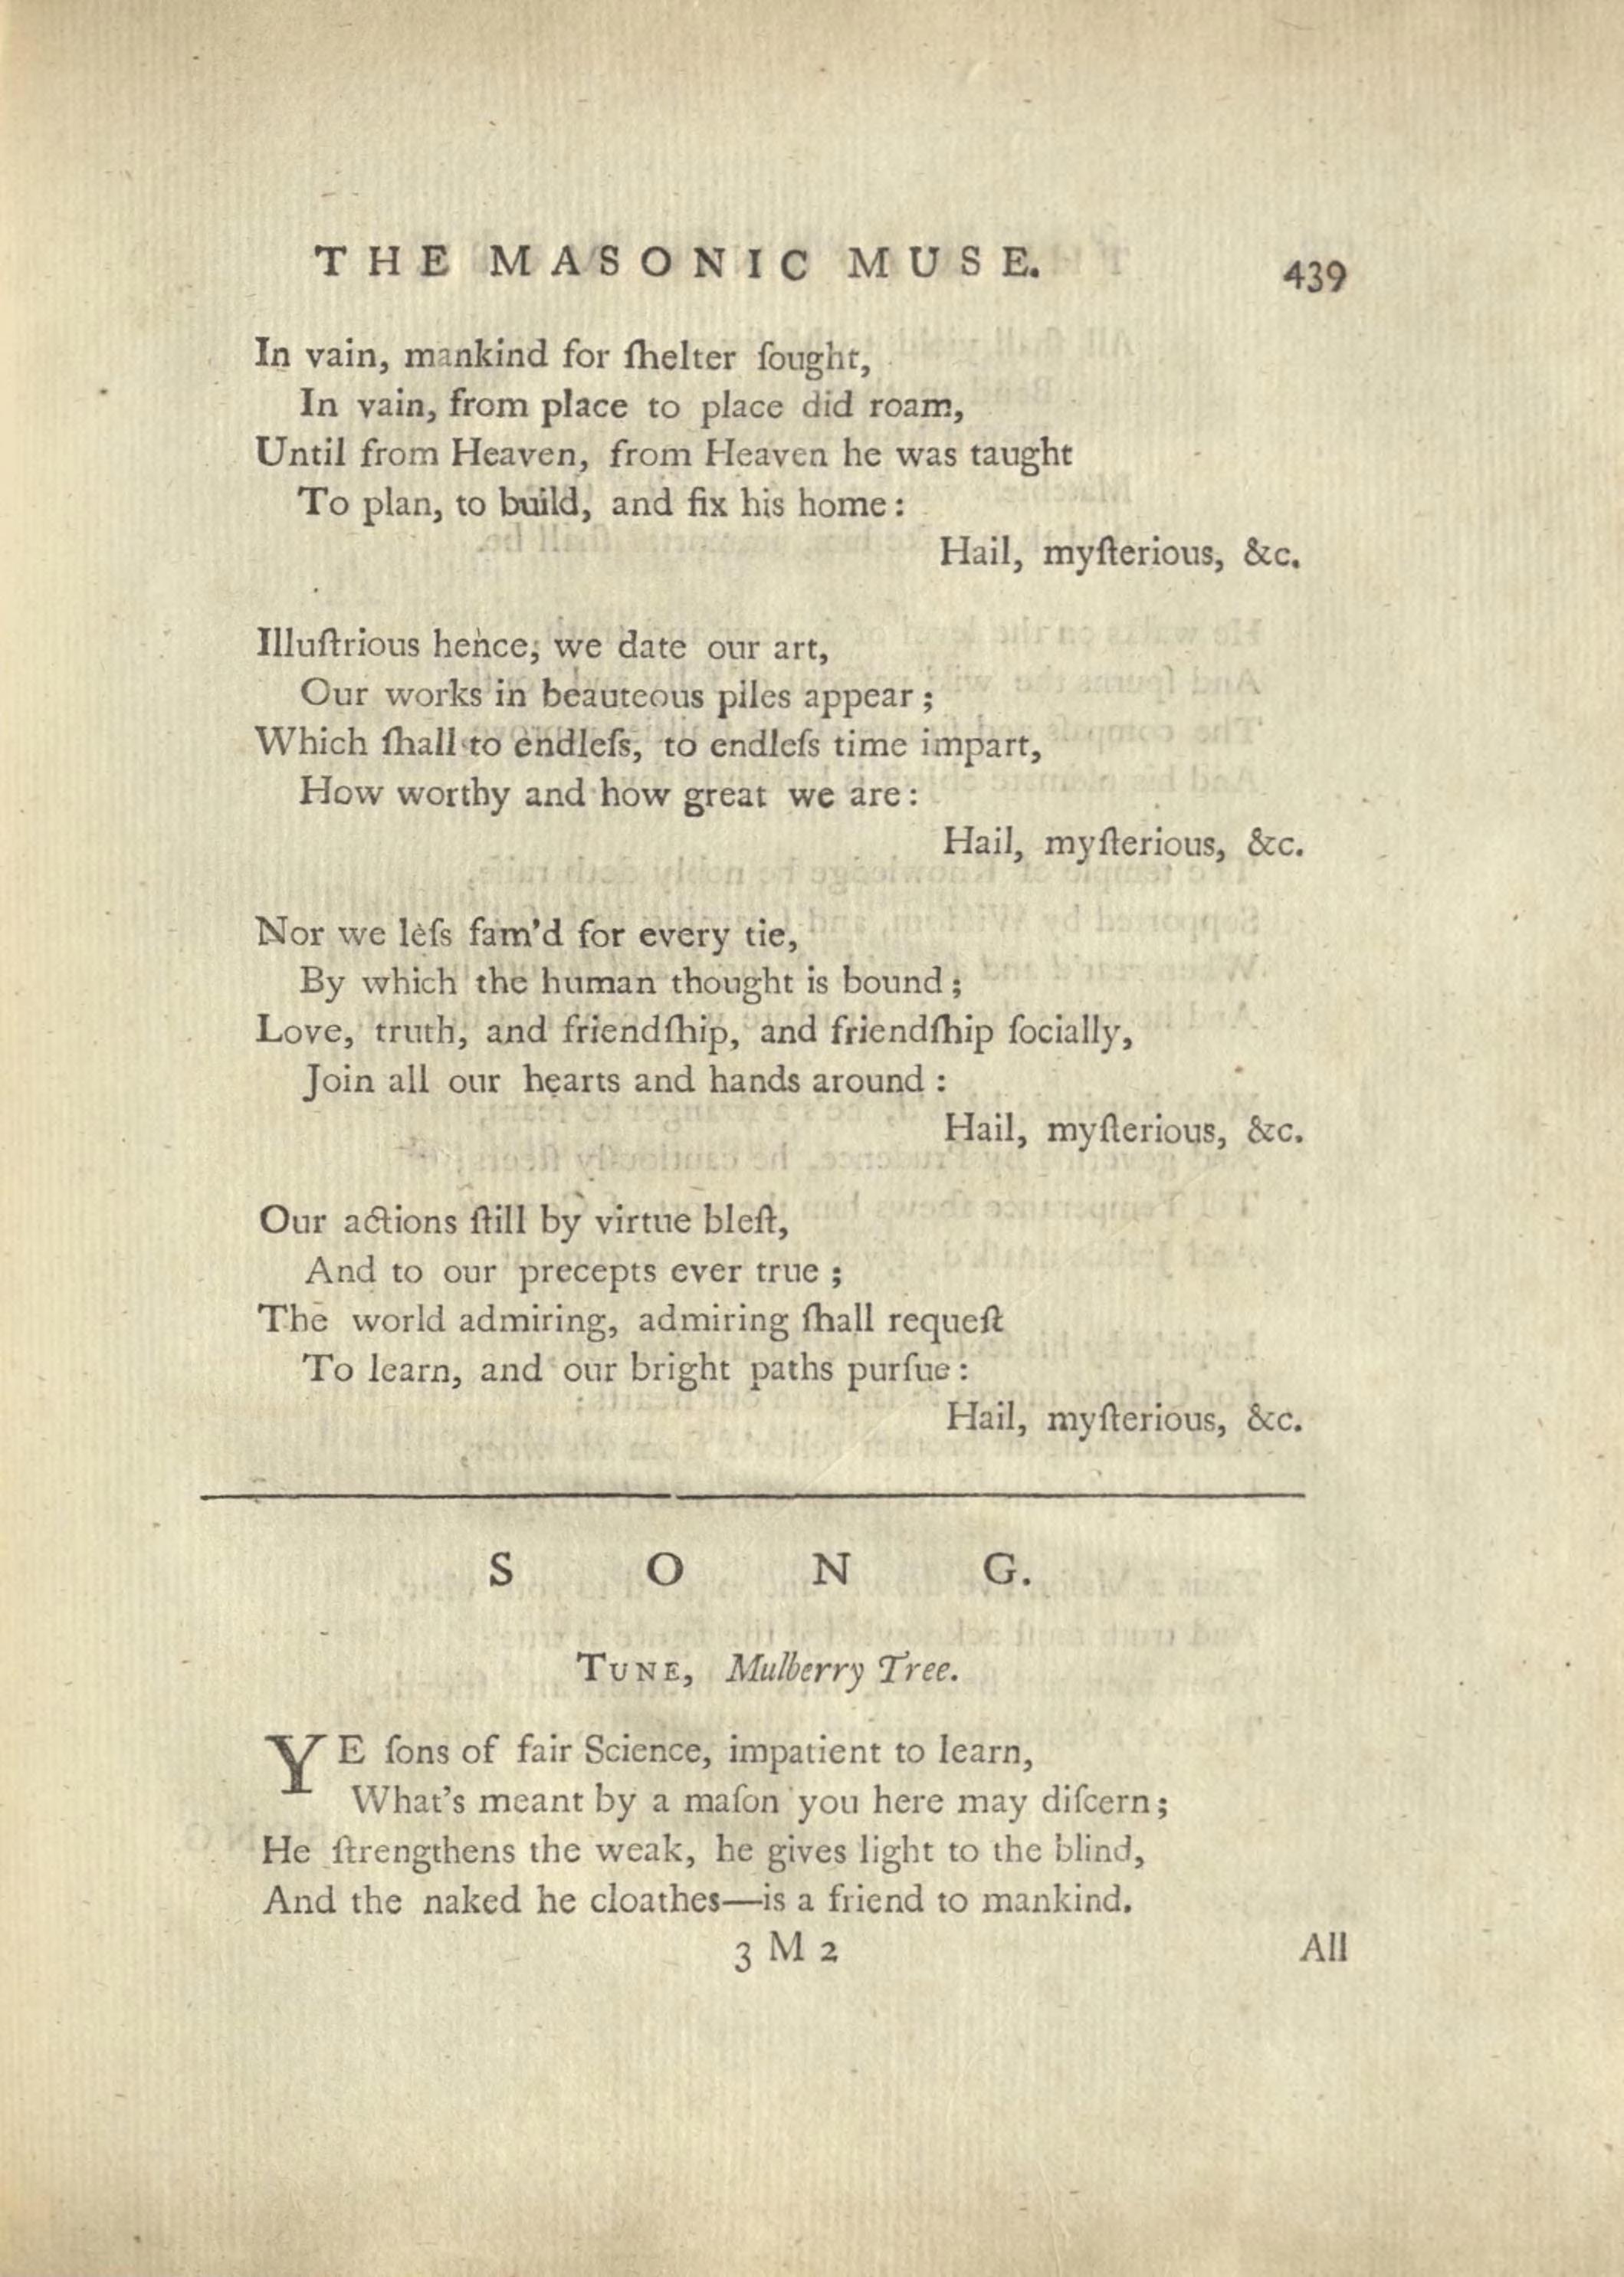 THE MASONIC MUSE. 439
In vain, mankind for ſhelter ſought,
In vain, from place to place did roam,
Until from Heaven, from Heaven he was taught
To plan, to build, and fix his home:
Hail, myſterious, &c.
Illuſtrious hence, we date our art,
Our works in beauteous piles appear;
Which ſhall to endleſs, to endleſs time impart,
How worthy and how great we are:
Hail, myſterious, &c.
Nor we leſs fam'd for every tie,
By which the human thought is bound;
Love, truth, and friendſhip, and friendſhip ſocially,
Join all our hearts and hands around:
Hail, myſterious, &c.
Our actions ſtill by virtue bleſt,
And to our precepts ever true;
The world admiring, admiring ſhall requeſt
To learn, and our bright paths purſue:
Hail, myſterious, &c.
SONG.
TUNE, Mulberry Tree.
YE ſons of fair Science, impatient to learn,
What's meant by a maſon you here may diſcern;
He ſtrengthens the weak, he gives light to the blind,
And the naked he cloathes—is a friend to mankind.
3 M 2 All